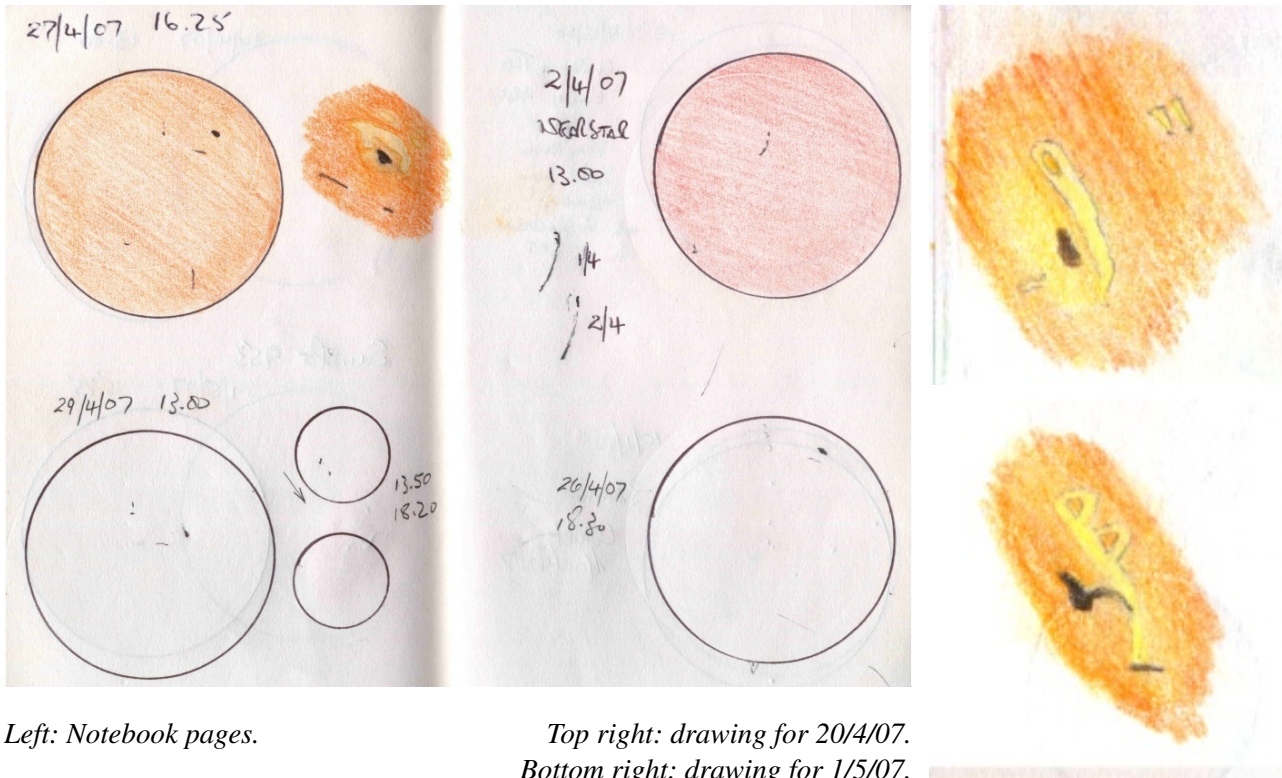 27/4/07 16.25
2/4/07
NEARSTAR
13.00
1/4
2/4
29/4/07 13.00
13.50
18.20
26/4/07
18.30
Left: Notebook pages.
Top right: drawing for 20/4/07.
Bottom right: drawing for 1/5/07.